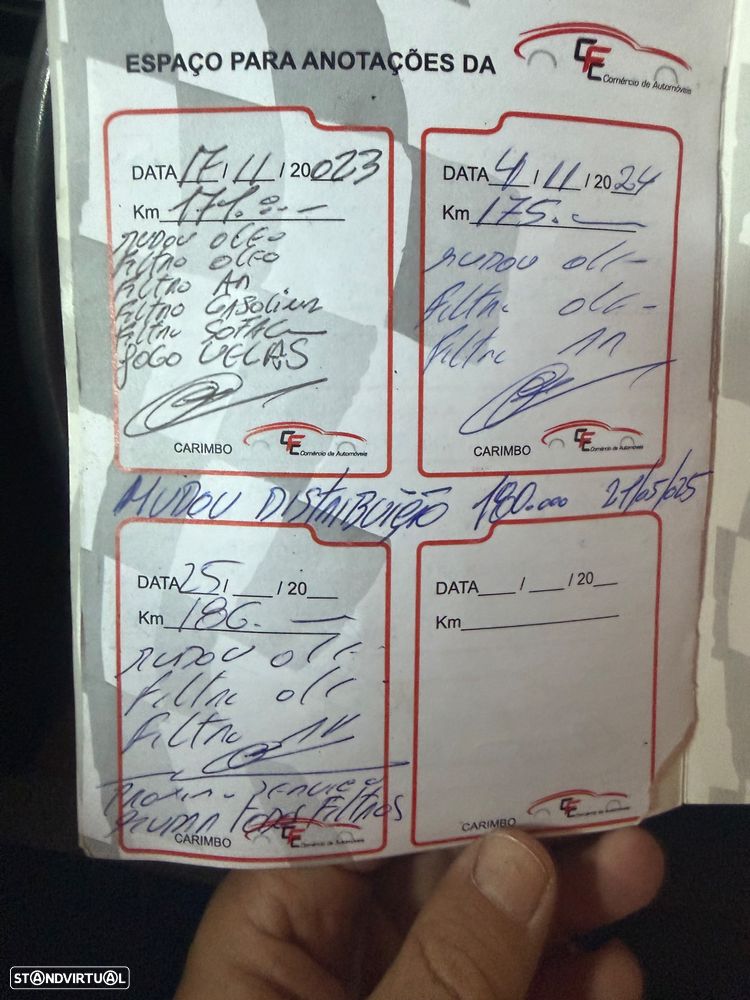 ESPAÇO PARA ANOTAÇÕES DA
CFC Comércio de Automóveis
DATA 17 / 11 / 20 023
Km 171.
MUDOU OLEO
FILTRO OLEO
FILTRO AR
FILTRO GASOLINA
FILTRO
JOGO VELAS
CARIMBO
CFC Comércio de Automóveis
DATA 4 / 11 / 20 24
Km 175.
MUDOU OLE
FILTRO OLE
FILTRO AR
CARIMBO
CFC Comércio de Automóveis
MUDOU DISTRIBUIÇÃO 180.000 21/05/025
DATA 25 / ___ / 20__
Km 186.
MUDOU OLE
FILTRO OLE
FILTRO AR
PROXIMO SERVIÇO
MUDAR TODOS FILTROS
CARIMBO
CFC Comércio de Automóveis
DATA ___ / ___ / 20__
Km
CARIMBO
CFC Comércio de Automóveis
STANDVIRTUAL